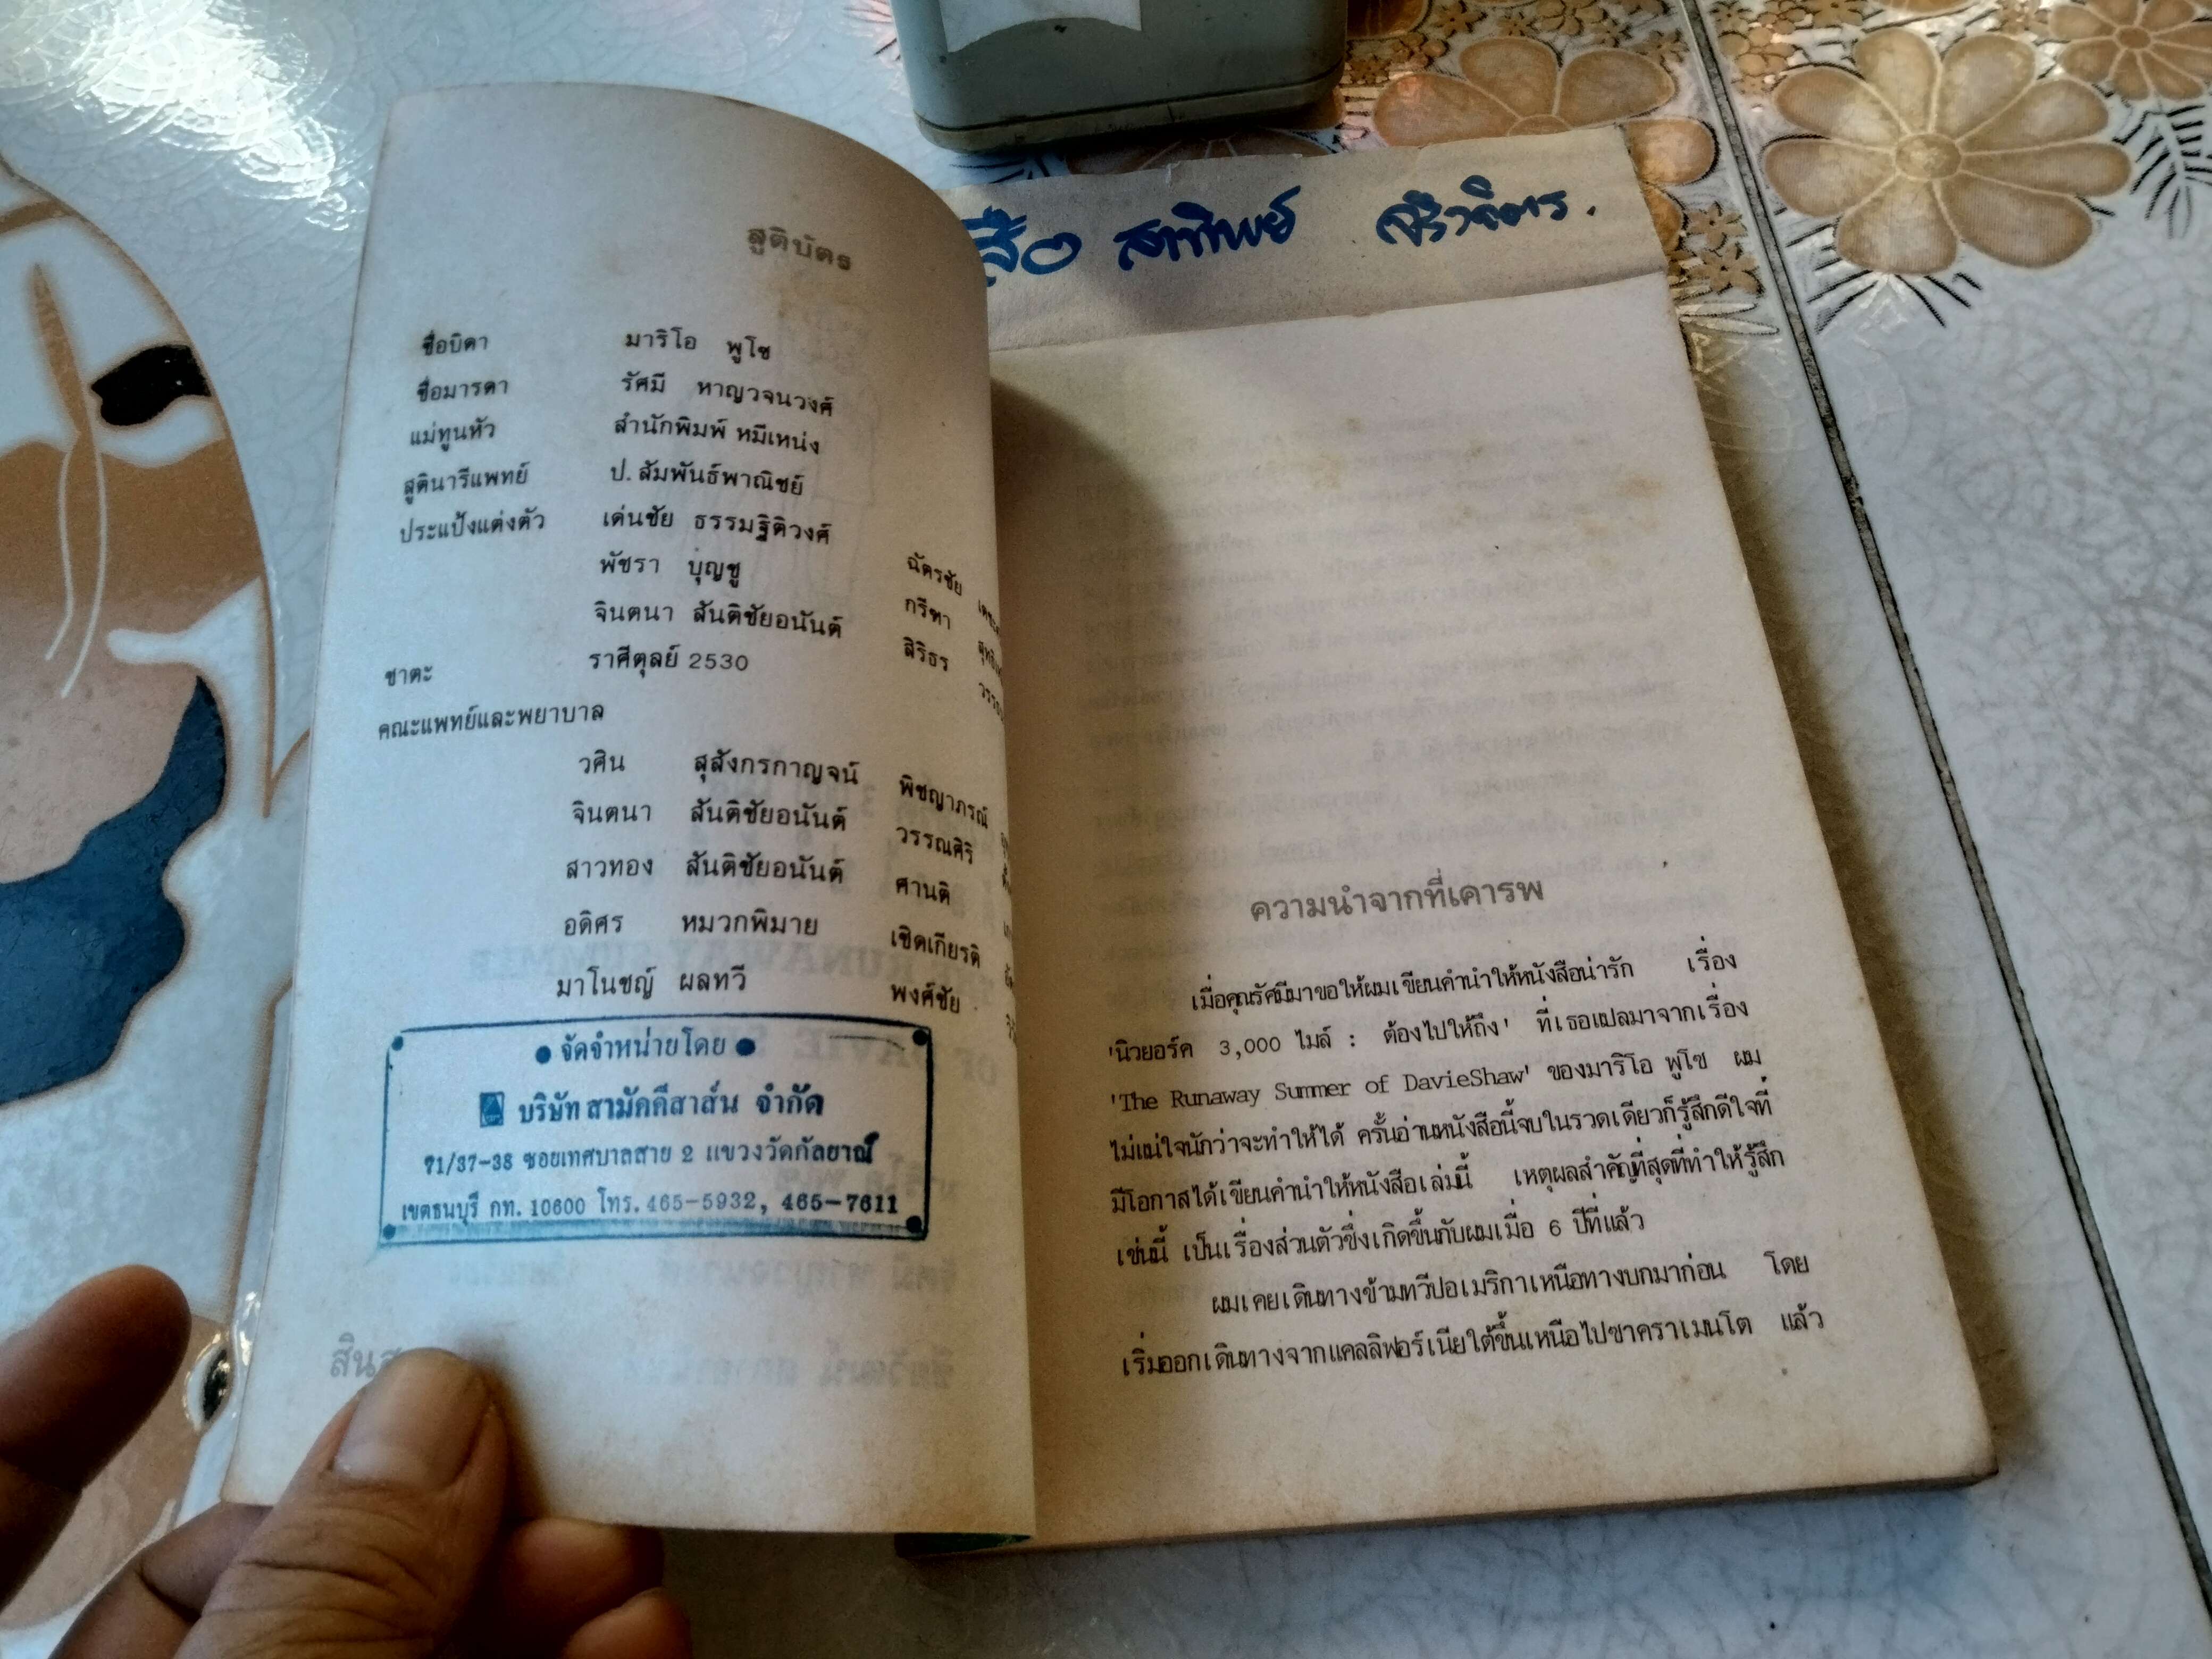 สูติบัตร
ชื่อบิดา มาริโอ พูโซ
ชื่อมารดา รัศมี หาญวจนวงศ์
แม่ทูนหัว สำนักพิมพ์ หมีเหน่ง
สูตินารีแพทย์ ป.สัมพันธ์พาณิชย์
ประแป้งแต่งตัว เด่นชัย ธรรมฐิติวงศ์ ฉัตรชัย
พัชรา บุญชู กรีฑา
จินตนา สันติชัยอนันต์ สิริธร
ชาตะ ราศีตุลย์ 2530
คณะแพทย์และพยาบาล
วศิน สุสังกรกาญจน์ พิชญาภรณ์
จินตนา สันติชัยอนันต์ วรรณศิริ
สาวทอง สันติชัยอนันต์ ศานติ
อดิศร หมวกพิมาย เชิดเกียรติ
มาโนชญ์ ผลทวี พงศ์ชัย
จัดจำหน่ายโดย
บริษัท สามัคคีสาส์น จำกัด
71/37-38 ซอยเทศบาลสาย 2 แขวงวัดกัลยาณ์
เขตธนบุรี กท. 10600 โทร. 465-5932, 465-7611
ความนำจากที่เคารพ
เมื่อคุณรัศมีมาขอให้ผมเขียนคำนำให้หนังสือน่ารัก เรื่อง
'นิวยอร์ค 3,000 ไมล์ : ต้องไปให้ถึง' ที่เธอแปลมาจากเรื่อง
'The Runaway Summer of DavieShaw' ของมาริโอ พูโซ ผม
ไม่แน่ใจนักว่าจะทำให้ได้ ครั้นอ่านหนังสือนี้จบในรวดเดียวก็รู้สึกดีใจที่
มีโอกาสได้เขียนคำนำให้หนังสือเล่มนี้ เหตุผลสำคัญที่สุดที่ทำให้รู้สึก
เช่นนี้ เป็นเรื่องส่วนตัวซึ่งเกิดขึ้นกับผมเมื่อ 6 ปีที่แล้ว
ผมเคยเดินทางข้ามทวีปอเมริกาเหนือทางบกมาก่อน โดย
เริ่มออกเดินทางจากแคลลิฟอร์เนียใต้ขึ้นเหนือไปซาคราเมนโต แล้ว